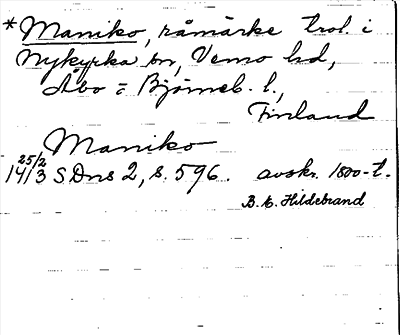 *Maniko, råmärke trol. i
Nykyrka sn, Vemo hd,
Åbo = Björneb. l.,
Finland
Maniko
25/2
14/3 SDns 2, s. 596. avskr. 1800-t.
B. E. Hildebrand